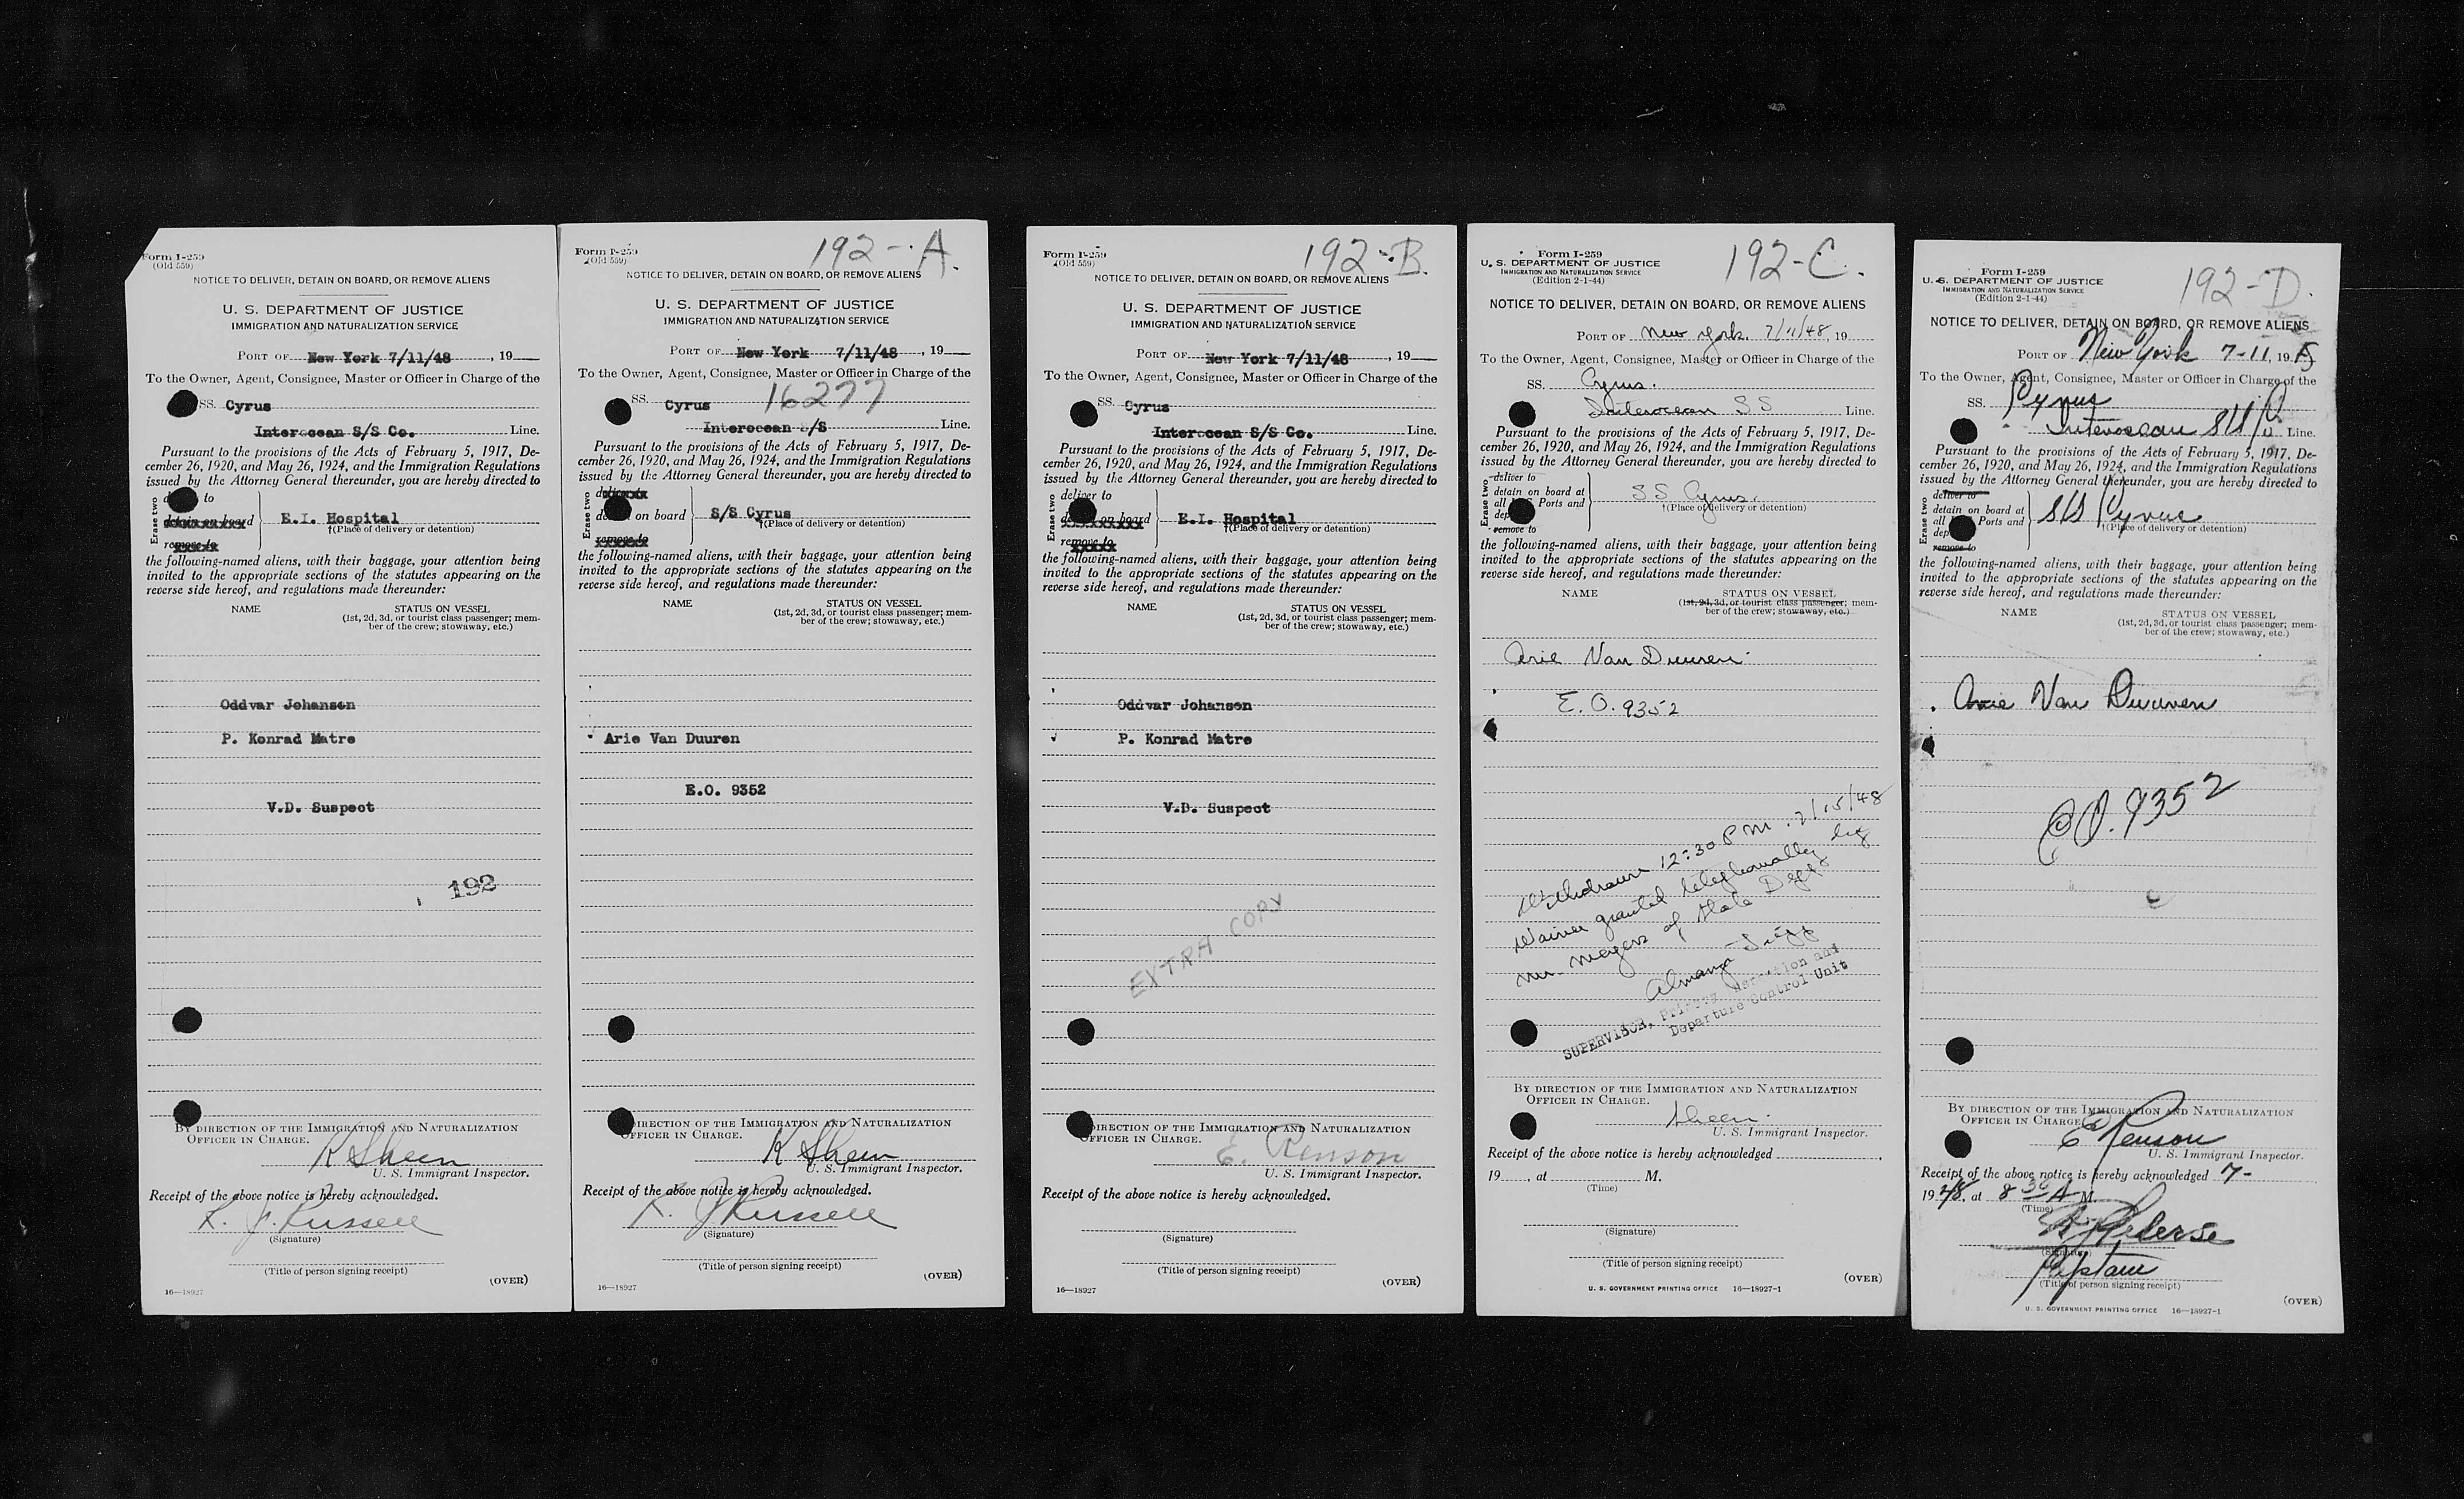 Form I-259
(Old 559)
NOTICE TO DELIVER, DETAIN ON BOARD, OR REMOVE ALIENS
U. S. DEPARTMENT OF JUSTICE
IMMIGRATION AND NATURALIZATION SERVICE
PORT OF New York 7/11/48, 19
To the Owner, Agent, Consignee, Master or Officer in Charge of the
SS. Cyrus
Interocean S/S Co. Line.
Pursuant to the provisions of the Acts of February 5, 1917, De-
cember 26, 1920, and May 26, 1924, and the Immigration Regulations
issued by the Attorney General thereunder, you are hereby directed to
Erase two
to
detain on board
E.I. Hospital
remove to
†(Place of delivery or detention)
the following-named aliens, with their baggage, your attention being
invited to the appropriate sections of the statutes appearing on the
reverse side hereof, and regulations made thereunder:
NAME STATUS ON VESSEL
(1st, 2d, 3d, or tourist class passenger; mem-
ber of the crew; stowaway, etc.)
Oddvar Johansen
P. Konrad Matre
V.D. Suspect
192
BY DIRECTION OF THE IMMIGRATION AND NATURALIZATION
OFFICER IN CHARGE.
K Sheen
U. S. Immigrant Inspector.
Receipt of the above notice is hereby acknowledged.
K. J. Russell
(Signature)
(Title of person signing receipt)
(OVER)
16—18927
192-A.
Form I-259
(Old 559)
NOTICE TO DELIVER, DETAIN ON BOARD, OR REMOVE ALIENS
U. S. DEPARTMENT OF JUSTICE
IMMIGRATION AND NATURALIZATION SERVICE
PORT OF New York 7/11/48, 19
To the Owner, Agent, Consignee, Master or Officer in Charge of the
SS. Cyrus 16277
Interocean S/S Line.
Pursuant to the provisions of the Acts of February 5, 1917, De-
cember 26, 1920, and May 26, 1924, and the Immigration Regulations
issued by the Attorney General thereunder, you are hereby directed to
Erase two
on board
S/S Cyrus
remove to
†(Place of delivery or detention)
the following-named aliens, with their baggage, your attention being
invited to the appropriate sections of the statutes appearing on the
reverse side hereof, and regulations made thereunder:
NAME STATUS ON VESSEL
(1st, 2d, 3d, or tourist class passenger; mem-
ber of the crew; stowaway, etc.)
Arie Van Duuren
E.O. 9352
DIRECTION OF THE IMMIGRATION AND NATURALIZATION
OFFICER IN CHARGE.
K Sheen
U. S. Immigrant Inspector.
Receipt of the above notice is hereby acknowledged.
K. J Russell
(Signature)
(Title of person signing receipt)
(OVER)
16—18927
192-B.
Form I-259
(Old 559)
NOTICE TO DELIVER, DETAIN ON BOARD, OR REMOVE ALIENS
U. S. DEPARTMENT OF JUSTICE
IMMIGRATION AND NATURALIZATION SERVICE
PORT OF New York 7/11/48, 19
To the Owner, Agent, Consignee, Master or Officer in Charge of the
SS. Cyrus
Interocean S/S Co. Line.
Pursuant to the provisions of the Acts of February 5, 1917, De-
cember 26, 1920, and May 26, 1924, and the Immigration Regulations
issued by the Attorney General thereunder, you are hereby directed to
Erase two
deliver to
on board
E.I. Hospital
remove to
†(Place of delivery or detention)
the following-named aliens, with their baggage, your attention being
invited to the appropriate sections of the statutes appearing on the
reverse side hereof, and regulations made thereunder:
NAME STATUS ON VESSEL
(1st, 2d, 3d, or tourist class passenger; mem-
ber of the crew; stowaway, etc.)
Oddvar Johansen
P. Konrad Matre
V.D. Suspect
EXTRA COPY
DIRECTION OF THE IMMIGRATION AND NATURALIZATION
OFFICER IN CHARGE.
E. Renson
U. S. Immigrant Inspector.
Receipt of the above notice is hereby acknowledged.
(Signature)
(Title of person signing receipt)
(OVER)
16—18927
192-C.
Form I-259
U. S. DEPARTMENT OF JUSTICE
IMMIGRATION AND NATURALIZATION SERVICE
(Edition 2-1-44)
NOTICE TO DELIVER, DETAIN ON BOARD, OR REMOVE ALIENS
PORT OF New York. 7/11/48, 19
To the Owner, Agent, Consignee, Master or Officer in Charge of the
SS. Cyrus.
Interocean SS Line.
Pursuant to the provisions of the Acts of February 5, 1917, De-
cember 26, 1920, and May 26, 1924, and the Immigration Regulations
issued by the Attorney General thereunder, you are hereby directed to
Erase two
deliver to
detain on board at
all Ports and
dep
remove to
SS Cyrus.
†(Place of delivery or detention)
the following-named aliens, with their baggage, your attention being
invited to the appropriate sections of the statutes appearing on the
reverse side hereof, and regulations made thereunder:
NAME STATUS ON VESSEL
(1st, 2d, 3d, or tourist class passenger; mem-
ber of the crew; stowaway, etc.)
Arie Van Duuren
E. O. 9352
Withdrawn 12:30 PM. 7/15/48
Waiver granted telephonically by
Mr. Meyers of State Dept
SUPERVISOR, Primary Inspection and
Departure Control Unit
BY DIRECTION OF THE IMMIGRATION AND NATURALIZATION
OFFICER IN CHARGE.
Sheen.
U. S. Immigrant Inspector.
Receipt of the above notice is hereby acknowledged
19, at M.
(Time)
(Signature)
(Title of person signing receipt)
(OVER)
U. S. GOVERNMENT PRINTING OFFICE 16—18927-1
192-D.
Form I-259
U. S. DEPARTMENT OF JUSTICE
IMMIGRATION AND NATURALIZATION SERVICE
(Edition 2-1-44)
NOTICE TO DELIVER, DETAIN ON BOARD, OR REMOVE ALIENS
PORT OF New York 7-11, 19
To the Owner, Agent, Consignee, Master or Officer in Charge of the
SS. Cyrus
Interocean Line.
Pursuant to the provisions of the Acts of February 5, 1917, De-
cember 26, 1920, and May 26, 1924, and the Immigration Regulations
issued by the Attorney General thereunder, you are hereby directed to
Erase two
deliver to
detain on board at
all Ports and
dep
remove to
S/S Cyrus
†(Place of delivery or detention)
the following-named aliens, with their baggage, your attention being
invited to the appropriate sections of the statutes appearing on the
reverse side hereof, and regulations made thereunder:
NAME STATUS ON VESSEL
(1st, 2d, 3d, or tourist class passenger; mem-
ber of the crew; stowaway, etc.)
Arie Van Duuren
E.O. 9352
BY DIRECTION OF THE IMMIGRATION AND NATURALIZATION
OFFICER IN CHARGE.
E Renson
U. S. Immigrant Inspector.
Receipt of the above notice is hereby acknowledged 7-
1948, at 8 30 A M.
(Time)
(Signature)
Captain
(Title of person signing receipt)
(OVER)
U. S. GOVERNMENT PRINTING OFFICE 16—18927-1